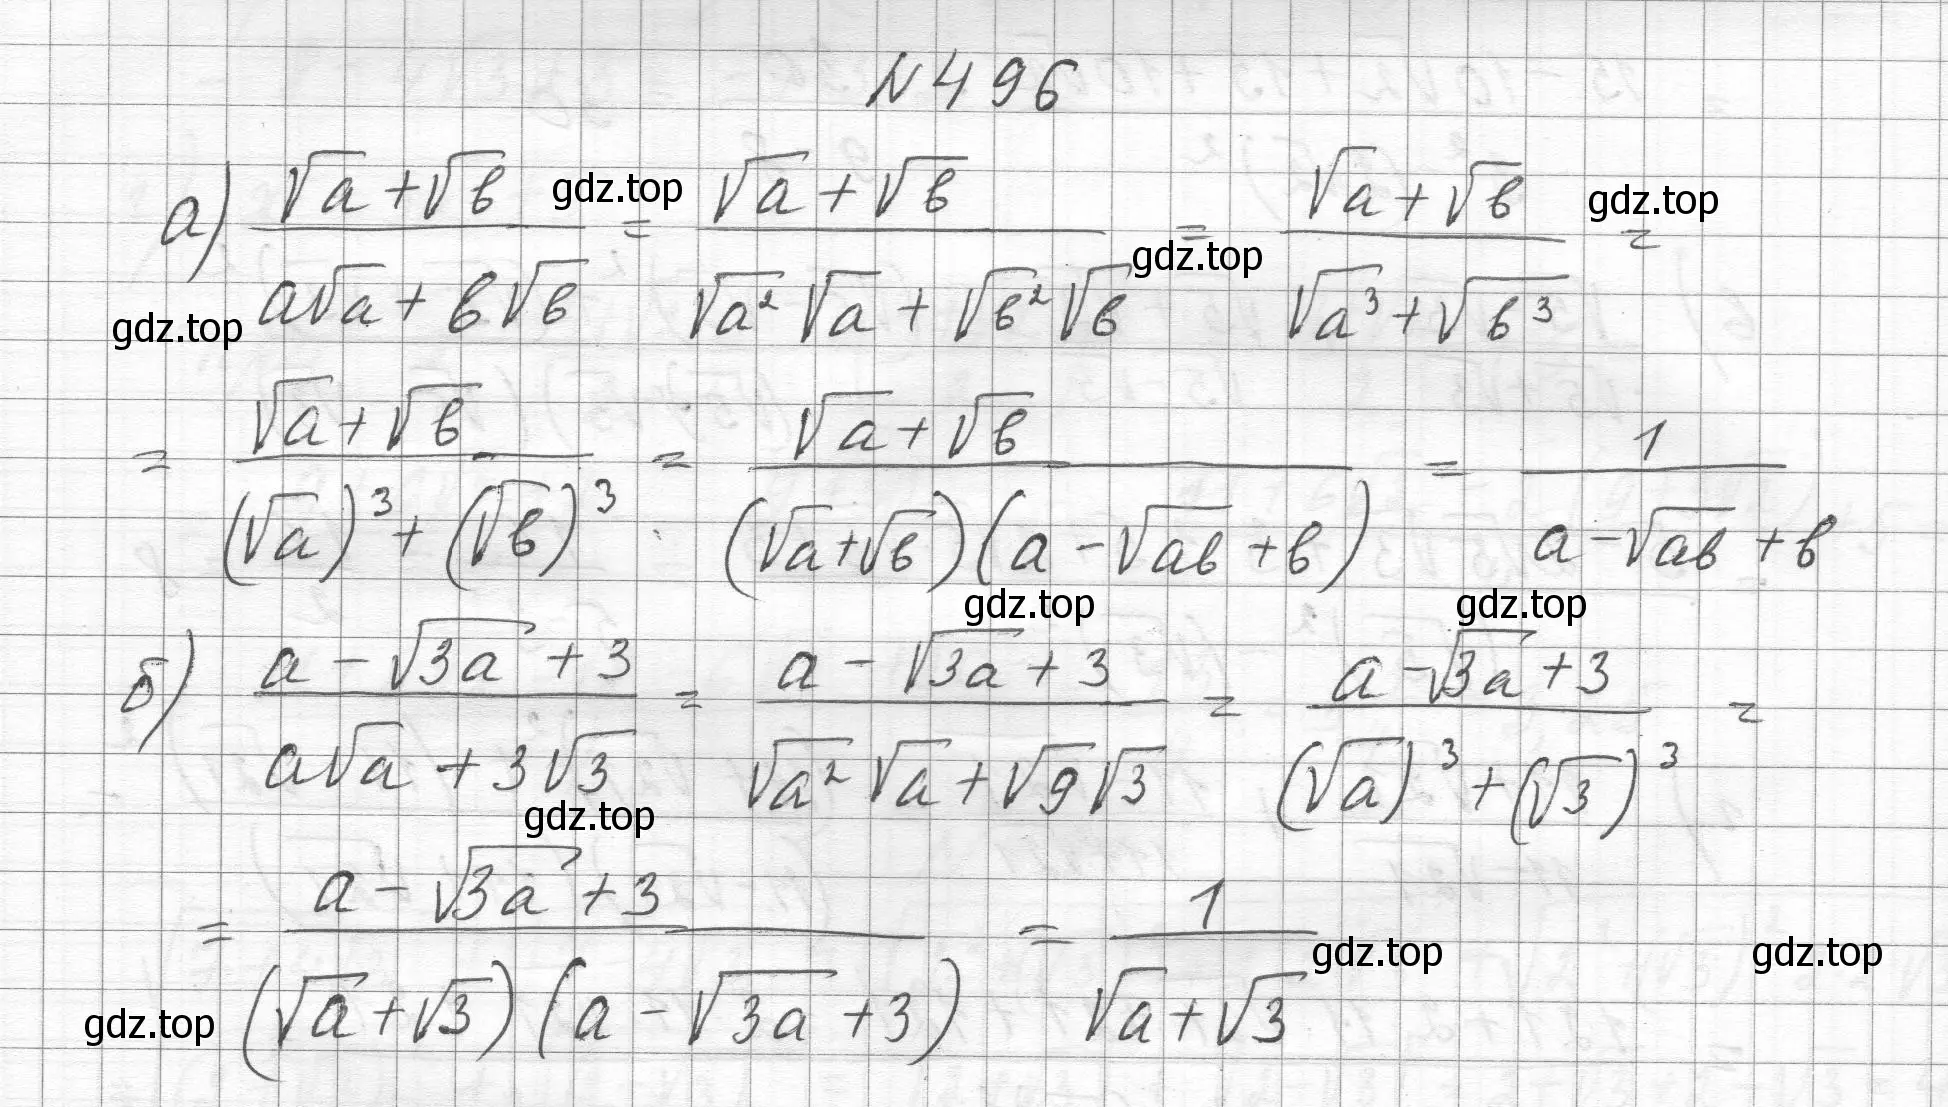 N 496
а) (√a + √b)/(a√a + b√b) = (√a + √b)/(√a² √a + √b² √b) = (√a + √b)/(√a³ + √b³) =
= (√a + √b)/((√a)³ + (√b)³) = (√a + √b)/((√a + √b)(a - √ab + b)) = 1/(a - √ab + b)
б) (a - √3a + 3)/(a√a + 3√3) = (a - √3a + 3)/(√a² √a + √9 √3) = (a - √3a + 3)/((√a)³ + (√3)³) =
= (a - √3a + 3)/((√a + √3)(a - √3a + 3)) = 1/(√a + √3)
gdz.top
gdz.top
gdz.top
gdz.top
gdz.top
gdz.top
gdz.top
gdz.top
gdz.top
gdz.top